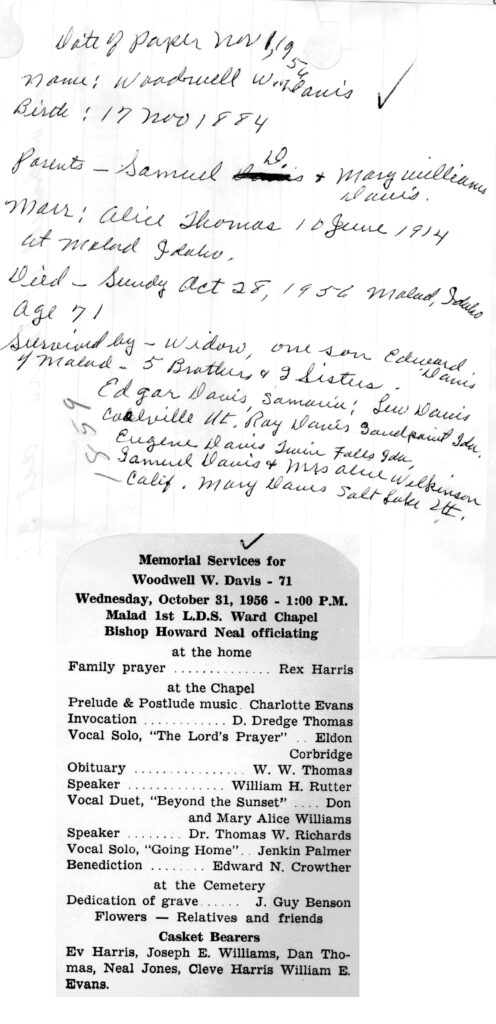 Date of Paper Nov 1, 1956
Name: Woodwell W. Davis ✓
Birth: 17 Nov 1884
Parents - Samuel D. & Mary Williams
Davis.
Marr: Alice Thomas 10 June 1914
at Malad Idaho.
Died - Sundy Oct 28, 1956 Malad, Idaho
Age 71
Survived by - Widow, one son Edward Davis
of Malad - 5 Brothers & 2 Sisters.
Edgar Davis, Samaria; Lew Davis
Coalville Ut. Ray Davis Sandpoint Ida.
Eugene Davis Twin Falls Ida,
Samuel Davis & Mrs Alice Wilkinson
Calif. Mary Davis Salt Lake Ut.
1859
✓
Memorial Services for
Woodwell W. Davis - 71
Wednesday, October 31, 1956 - 1:00 P.M.
Malad 1st L.D.S. Ward Chapel
Bishop Howard Neal officiating
at the home
Family prayer .............. Rex Harris
at the Chapel
Prelude & Postlude music. Charlotte Evans
Invocation ............ D. Dredge Thomas
Vocal Solo, "The Lord's Prayer" .. Eldon
Corbridge
Obituary ................ W. W. Thomas
Speaker .............. William H. Rutter
Vocal Duet, "Beyond the Sunset" .... Don
and Mary Alice Williams
Speaker ........ Dr. Thomas W. Richards
Vocal Solo, "Going Home".. Jenkin Palmer
Benediction ........ Edward N. Crowther
at the Cemetery
Dedication of grave...... J. Guy Benson
Flowers — Relatives and friends
Casket Bearers
Ev Harris, Joseph E. Williams, Dan Tho-
mas, Neal Jones, Cleve Harris William E.
Evans.